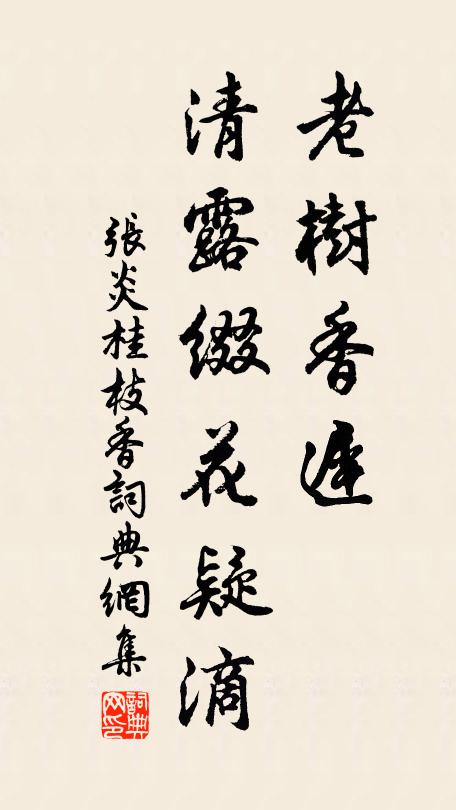 老樹香遲
清露綴花疑滴
張炎桂枝香詞典網集
詞典网印